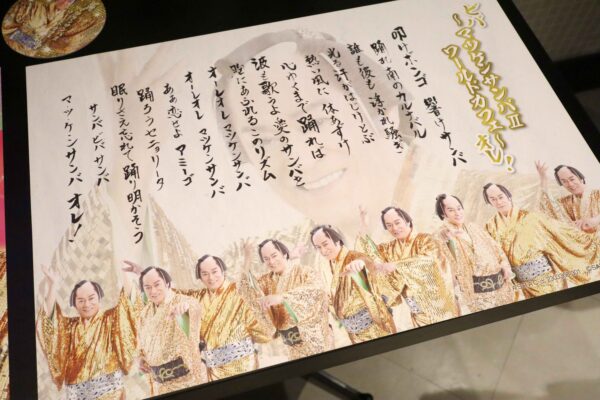 ビバ マツケンサンバⅡ
ワールドカフェ・オレ!
叩けボンゴ 響けサンバ
踊れ南のカルナバル
誰も彼も 浮かれ騒ぎ
光る汗がはじけとぶ
熱い風に 体あずけ
心ゆくまで 踊れば
波も歌うよ 愛のサンバを
胸にあふれる このリズム
オーレオレ マツケンサンバ
オーレオレ マツケンサンバ
ああ 恋せよ アミーゴ
踊ろう セニョリータ
眠りさえ忘れて 踊り明かそう
サンバ ビバ サンバ
マツケンサンバ オレ!